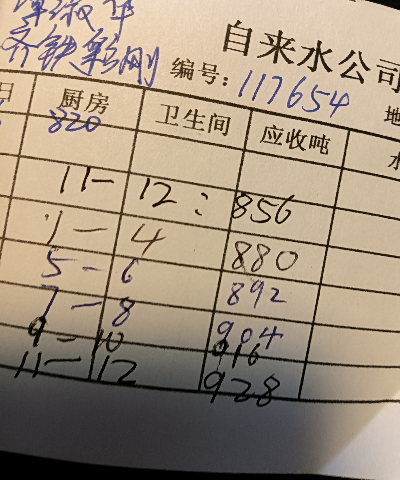 自来水公司
编号:117654
日 厨房 卫生间 应收吨
820
11-12:856
1-4 880
5-6 892
7-8 904
9-10 916
11-12 928